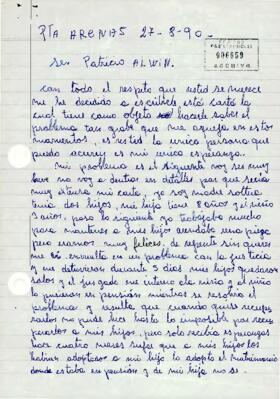 PTA ARENAS 27-8-90.-
006859
ARCHIVO
Sr. Patricio ALWIN.
con todo el respeto que usted se merece
me he decidido a escribirle está carta la
cual tiene como objeto hacerle saber el
problema tan grabe que me aqueja en estos
momentos, es usted la unica persona que
puede ser mi unica esperanza.
Mi problema es el siguiente voy ser muy
breve no voy a dentrar en detalles por que seria
muy extensa mi carta, yo soy madre soltera
tenia dos hijos, mi hija tiene 8 años y el niño
3 años, paso lo siguiente yo trabajaba mucho
para mantener a mis hijos arendaba una pieza
pero eramos muy felices, de repente sin querer
me envuelta en un problema con la justicia
y me detuvieron durante 5 dias mis hijos quedaron
solos y el juzgado me interno ala niña y el niño
lo pusieron en pensión mientras se resolvia el
problema y resulta que cuando quise recuper-
arlos no pude hice hasta lo imposible por recu-
perarlos a mis hijos, pero solo recibia esperanzas
hace cuatro meses supe que a mis hijos los
habian adoptado a mi hijo lo adopto el matrimonio
donde estaba en pensión y de mi hija no se